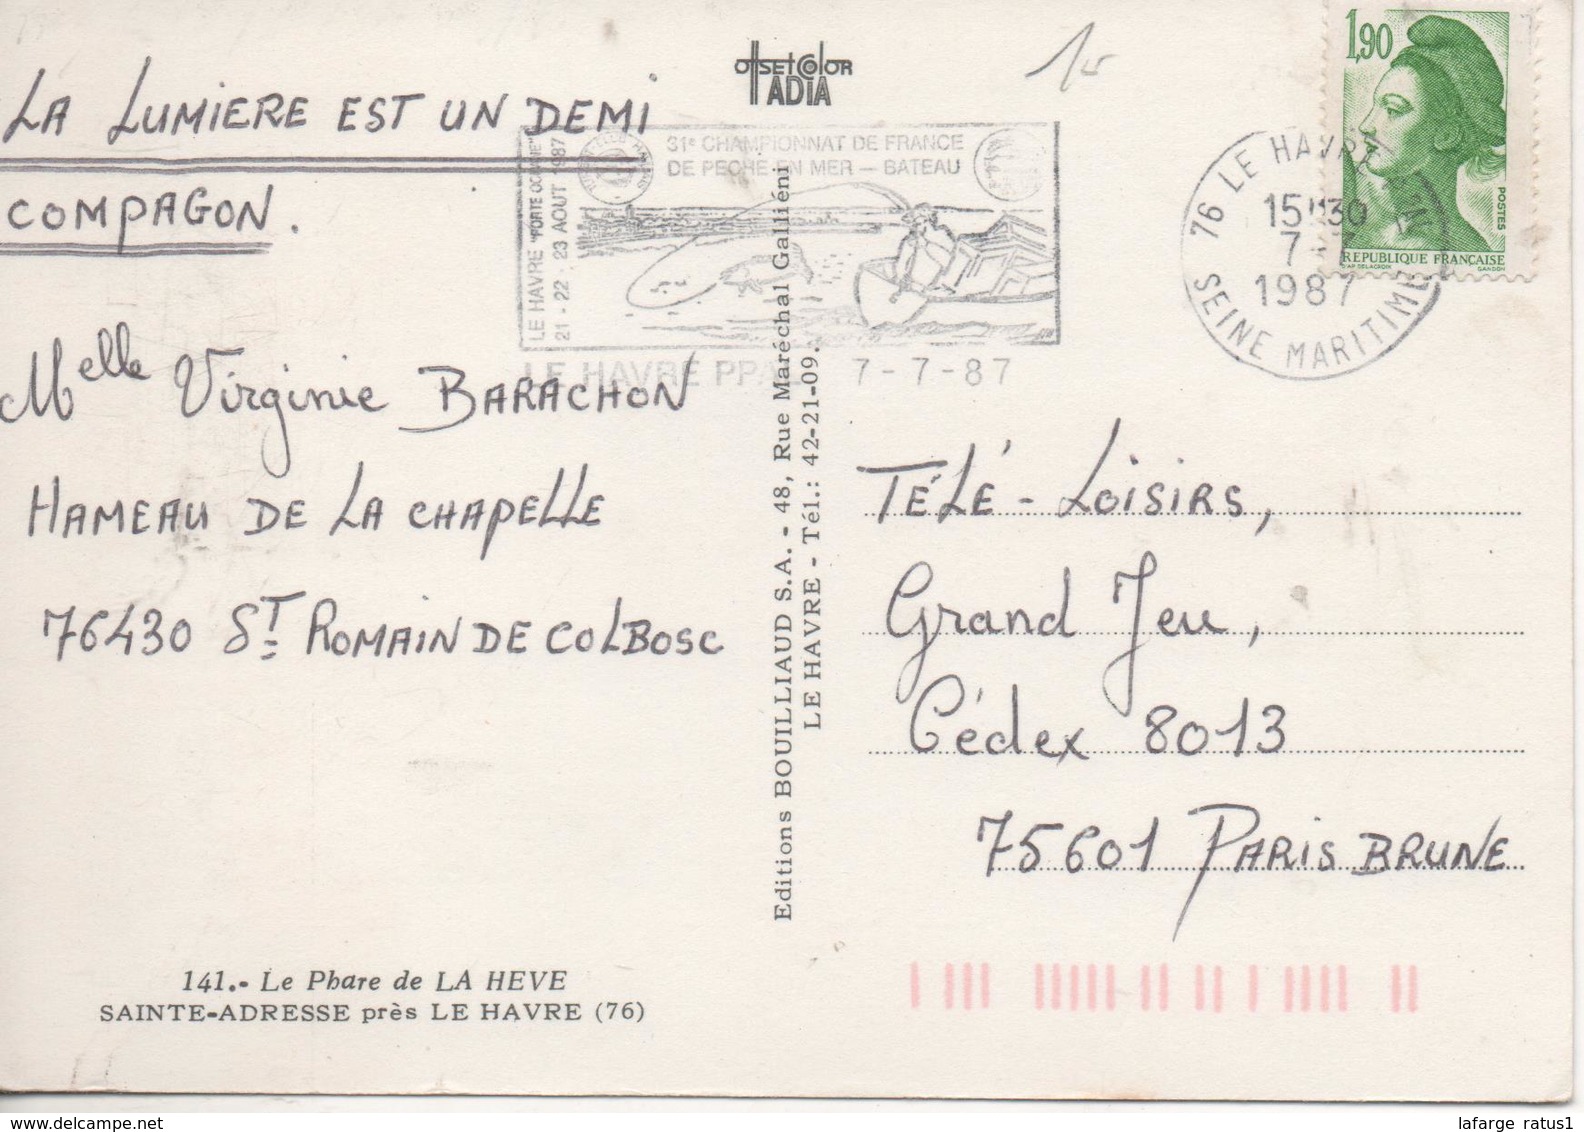 LA LUMIERE EST UN DEMI
COMPAGON.
Melle Virginie BARACHON
HAMEAU DE LA CHAPELLE
76430 ST ROMAIN DE COLBOSC
141.- Le Phare de LA HEVE
SAINTE-ADRESSE près LE HAVRE (76)
OffSET COLOR
ADIA
31e CHAMPIONNAT DE FRANCE
DE PECHE EN MER - BATEAU
LE HAVRE "PORTE OCEANE"
21 - 22 - 23 AOUT 1987
LE HAVRE PPAL 7-7-87
Editions BOUILLIAUD S.A. - 48, Rue Maréchal Galliéni
LE HAVRE - Tél.: 42-21-09.
76 LE HAVRE
15H30
7-7
1987
SEINE MARITIME
1,90
POSTES
REPUBLIQUE FRANÇAISE
D'AP. DELACROIX
GANDON
TÉLÉ-LOISIRS,
Grand Jeu,
Cédex 8013
75601 PARIS BRUNE
lafarge ratus1